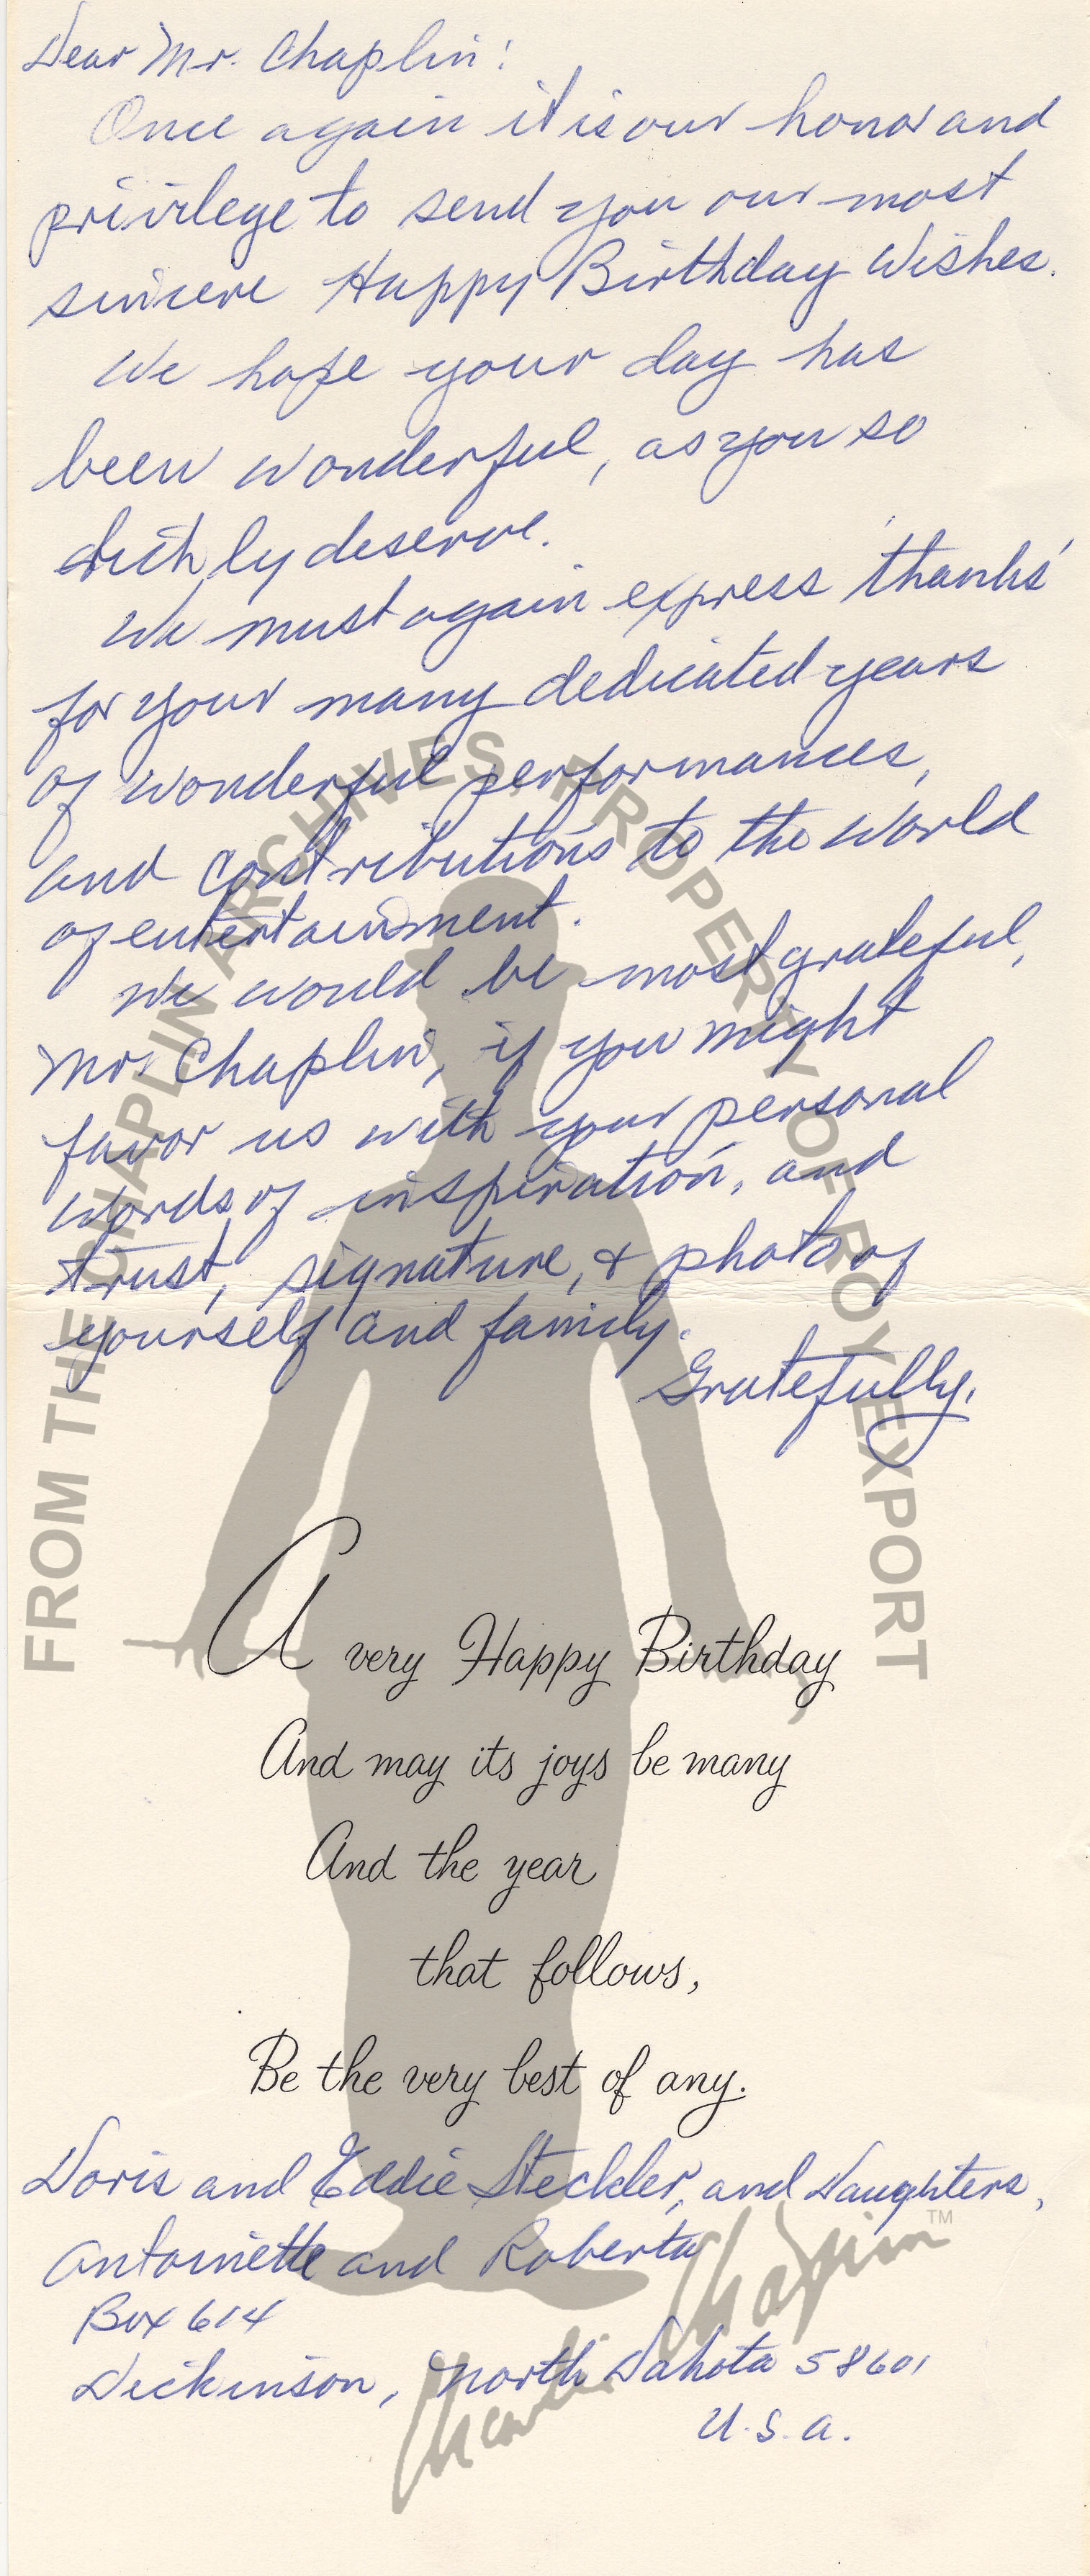 Dear Mr. Chaplin:
Once again it is our honor and
privilege to send you our most
sincere Happy Birthday Wishes.
We hope your day has
been wonderful, as you so
richly deserve.
We must again express 'thanks'
for your many dedicated years
of wonderful performances,
and contributions to the world
of entertainment.
We would be most grateful,
Mr. Chaplin, if you might
favor us with your personal
words of inspiration, and
trust, signature, & photo of
yourself and family.
Gratefully,
A very Happy Birthday
And may its joys be many
And the year
that follows,
Be the very best of any.
Doris and Eddie Steckler, and Daughters,
Antoinette and Roberta
Box 614
Dickinson, North Dakota 58601
U.S.A.
FROM THE CHAPLIN ARCHIVES, PROPERTY OF ROY EXPORT
Charlie Chaplin™